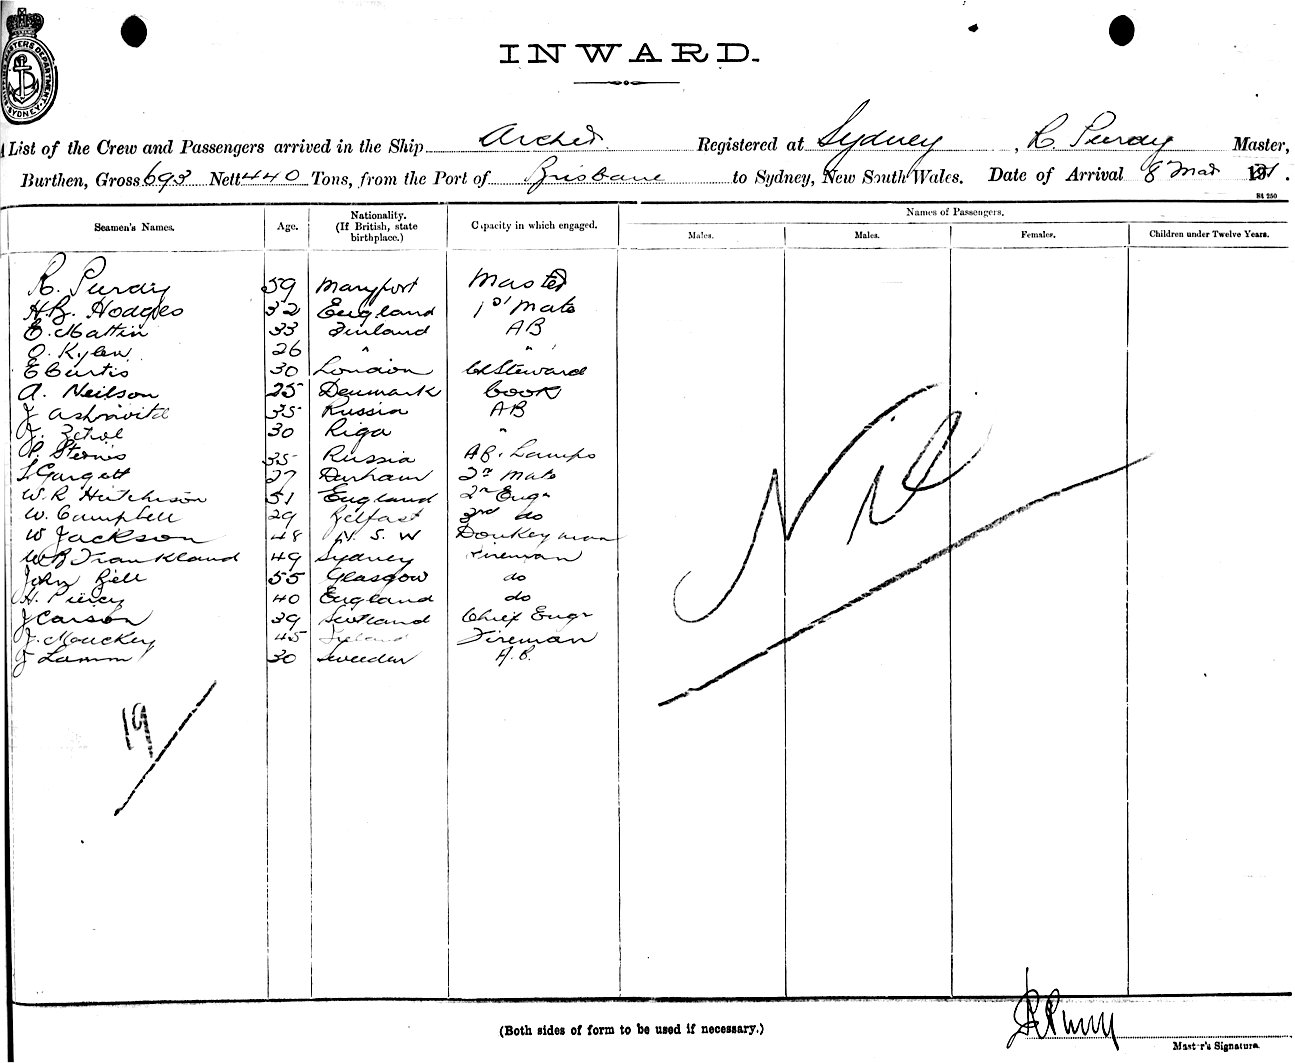 INWARD.
List of the Crew and Passengers arrived in the Ship Archer Registered at Sydney, R. Purdy Master,
Burthen, Gross 693 Nett 440 Tons, from the Port of Brisbane to Sydney, New South Wales. Date of Arrival 8 Mar
S4 250
Names of Passengers.
Seamen's Names. Age. Nationality. (If British, state birthplace.) Capacity in which engaged. Males. Males. Females. Children under Twelve Years.
R. Purdy 59 Maryport Master
H.B. Hodges 32 England 1st Mate
E. Mattin 33 Finland AB
O. Kylen 26 " "
E Curtis 30 London Ch Steward
A. Neilson 25 Denmark Cook
J 35 Russia AB
J. 30 Riga "
P. 35 Russia AB. Lamps
L Gargett 27 Durham 2nd Mate
W. R Hutchison 51 England 2nd Engr
W. Campbell 29 Belfast 3rd do
W Jackson 48 N. S. W Donkeyman
W B Frankland 49 Sydney Fireman
John Bell 55 Glasgow do
H. Piercy 40 England do
J Carson 39 Scotland Chief Engr
J. Mouckey 45 Ireland Fireman
J Lamm 30 Sweeden A.B.
Nil
19
(Both sides of form to be used if necessary.)
R Purdy
Master's Signature.